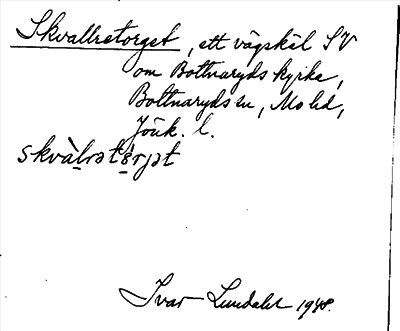 Skvallretorget, ett vägskäl SV
om Bottnaryds kyrka,
Bottnaryds sn, Mo hd,
Jönk. l.
skvàlrət ɛ̀rjət
Ivar Lundahl 1948.